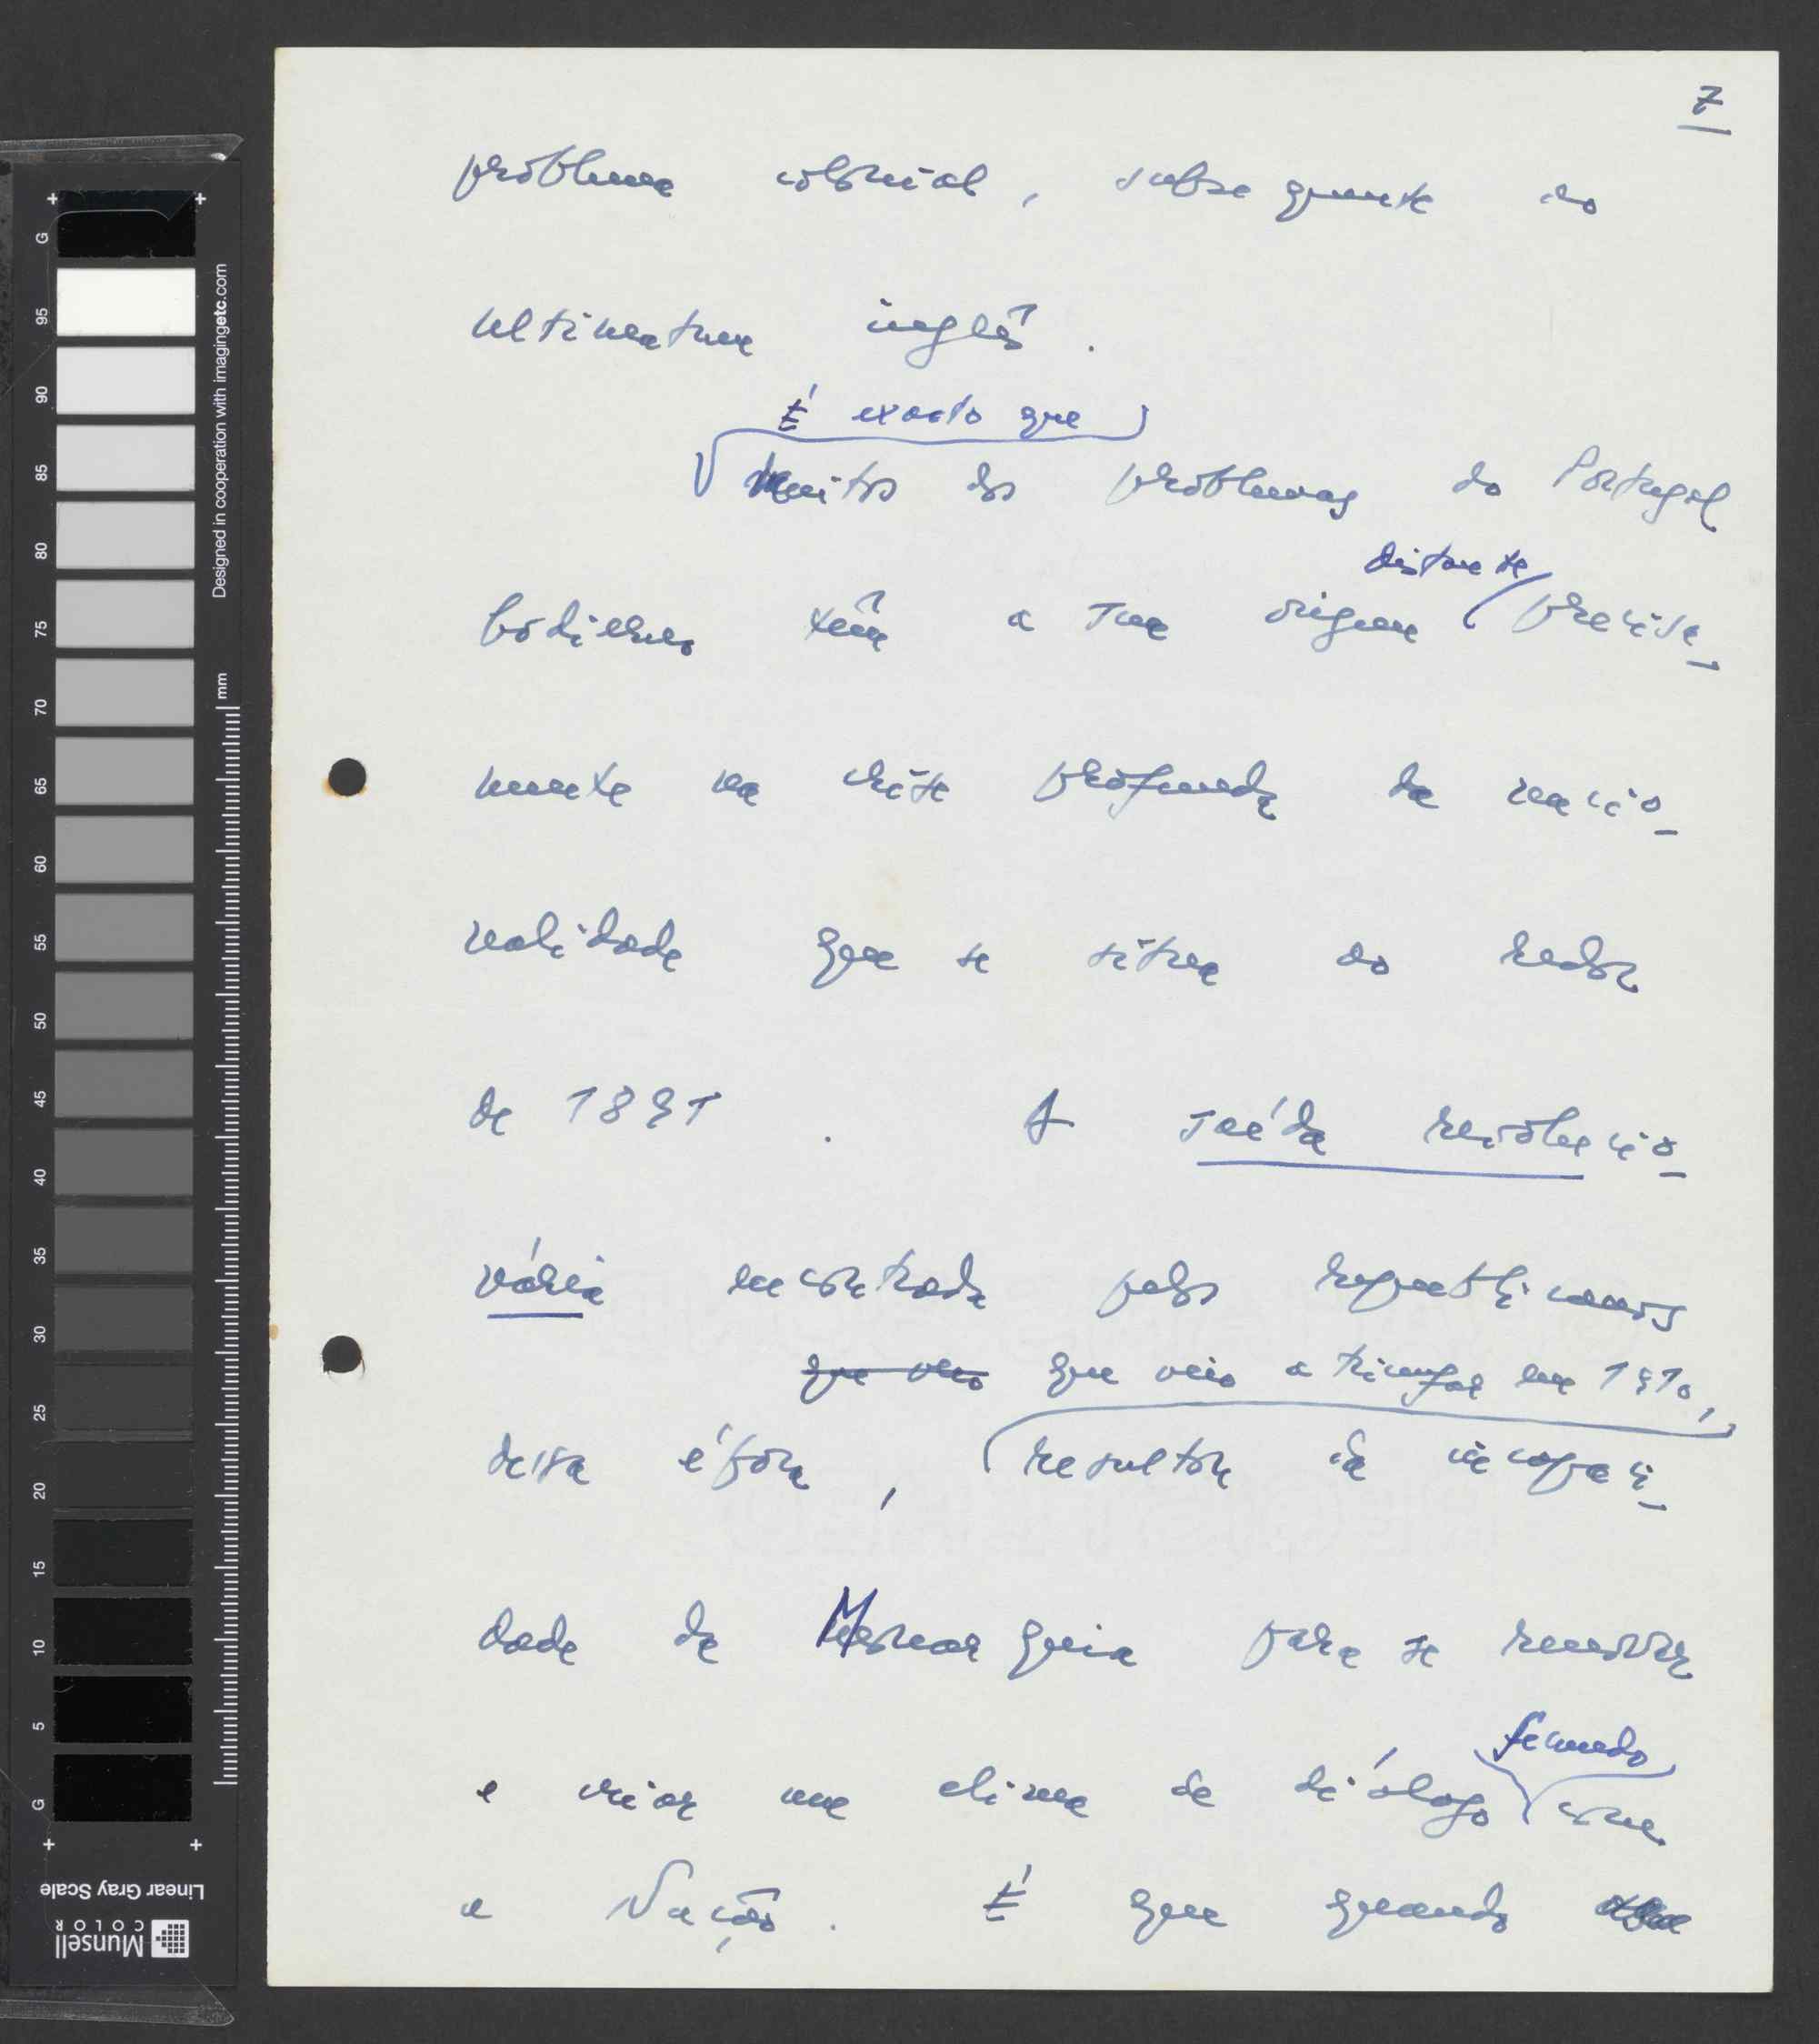 7
problema colonial, subsequente ao
ultimatum inglês.
É exacto que
Muitos dos problemas do Portugal
distante
hodierno têm a sua origem precisa-
mente na crise profunda da nacio-
nalidade que se situa ao redor
de 1891. A saída revolucio-
nária encontrada pelos republicanos
que veio que veio a triunfar em 1910,
dessa época, resultou da incapaci-
dade da Monarquia para se renovar
e criar um clima de diálogo com
fecundo
a Nação. É que quando
G
95
90
85
80
75
70
65
60
55
50
45
40
35
30
25
20
15
10
5
G
Designed in cooperation with imagingetc.com
mm
Linear Gray Scale
Munsell
COLOR